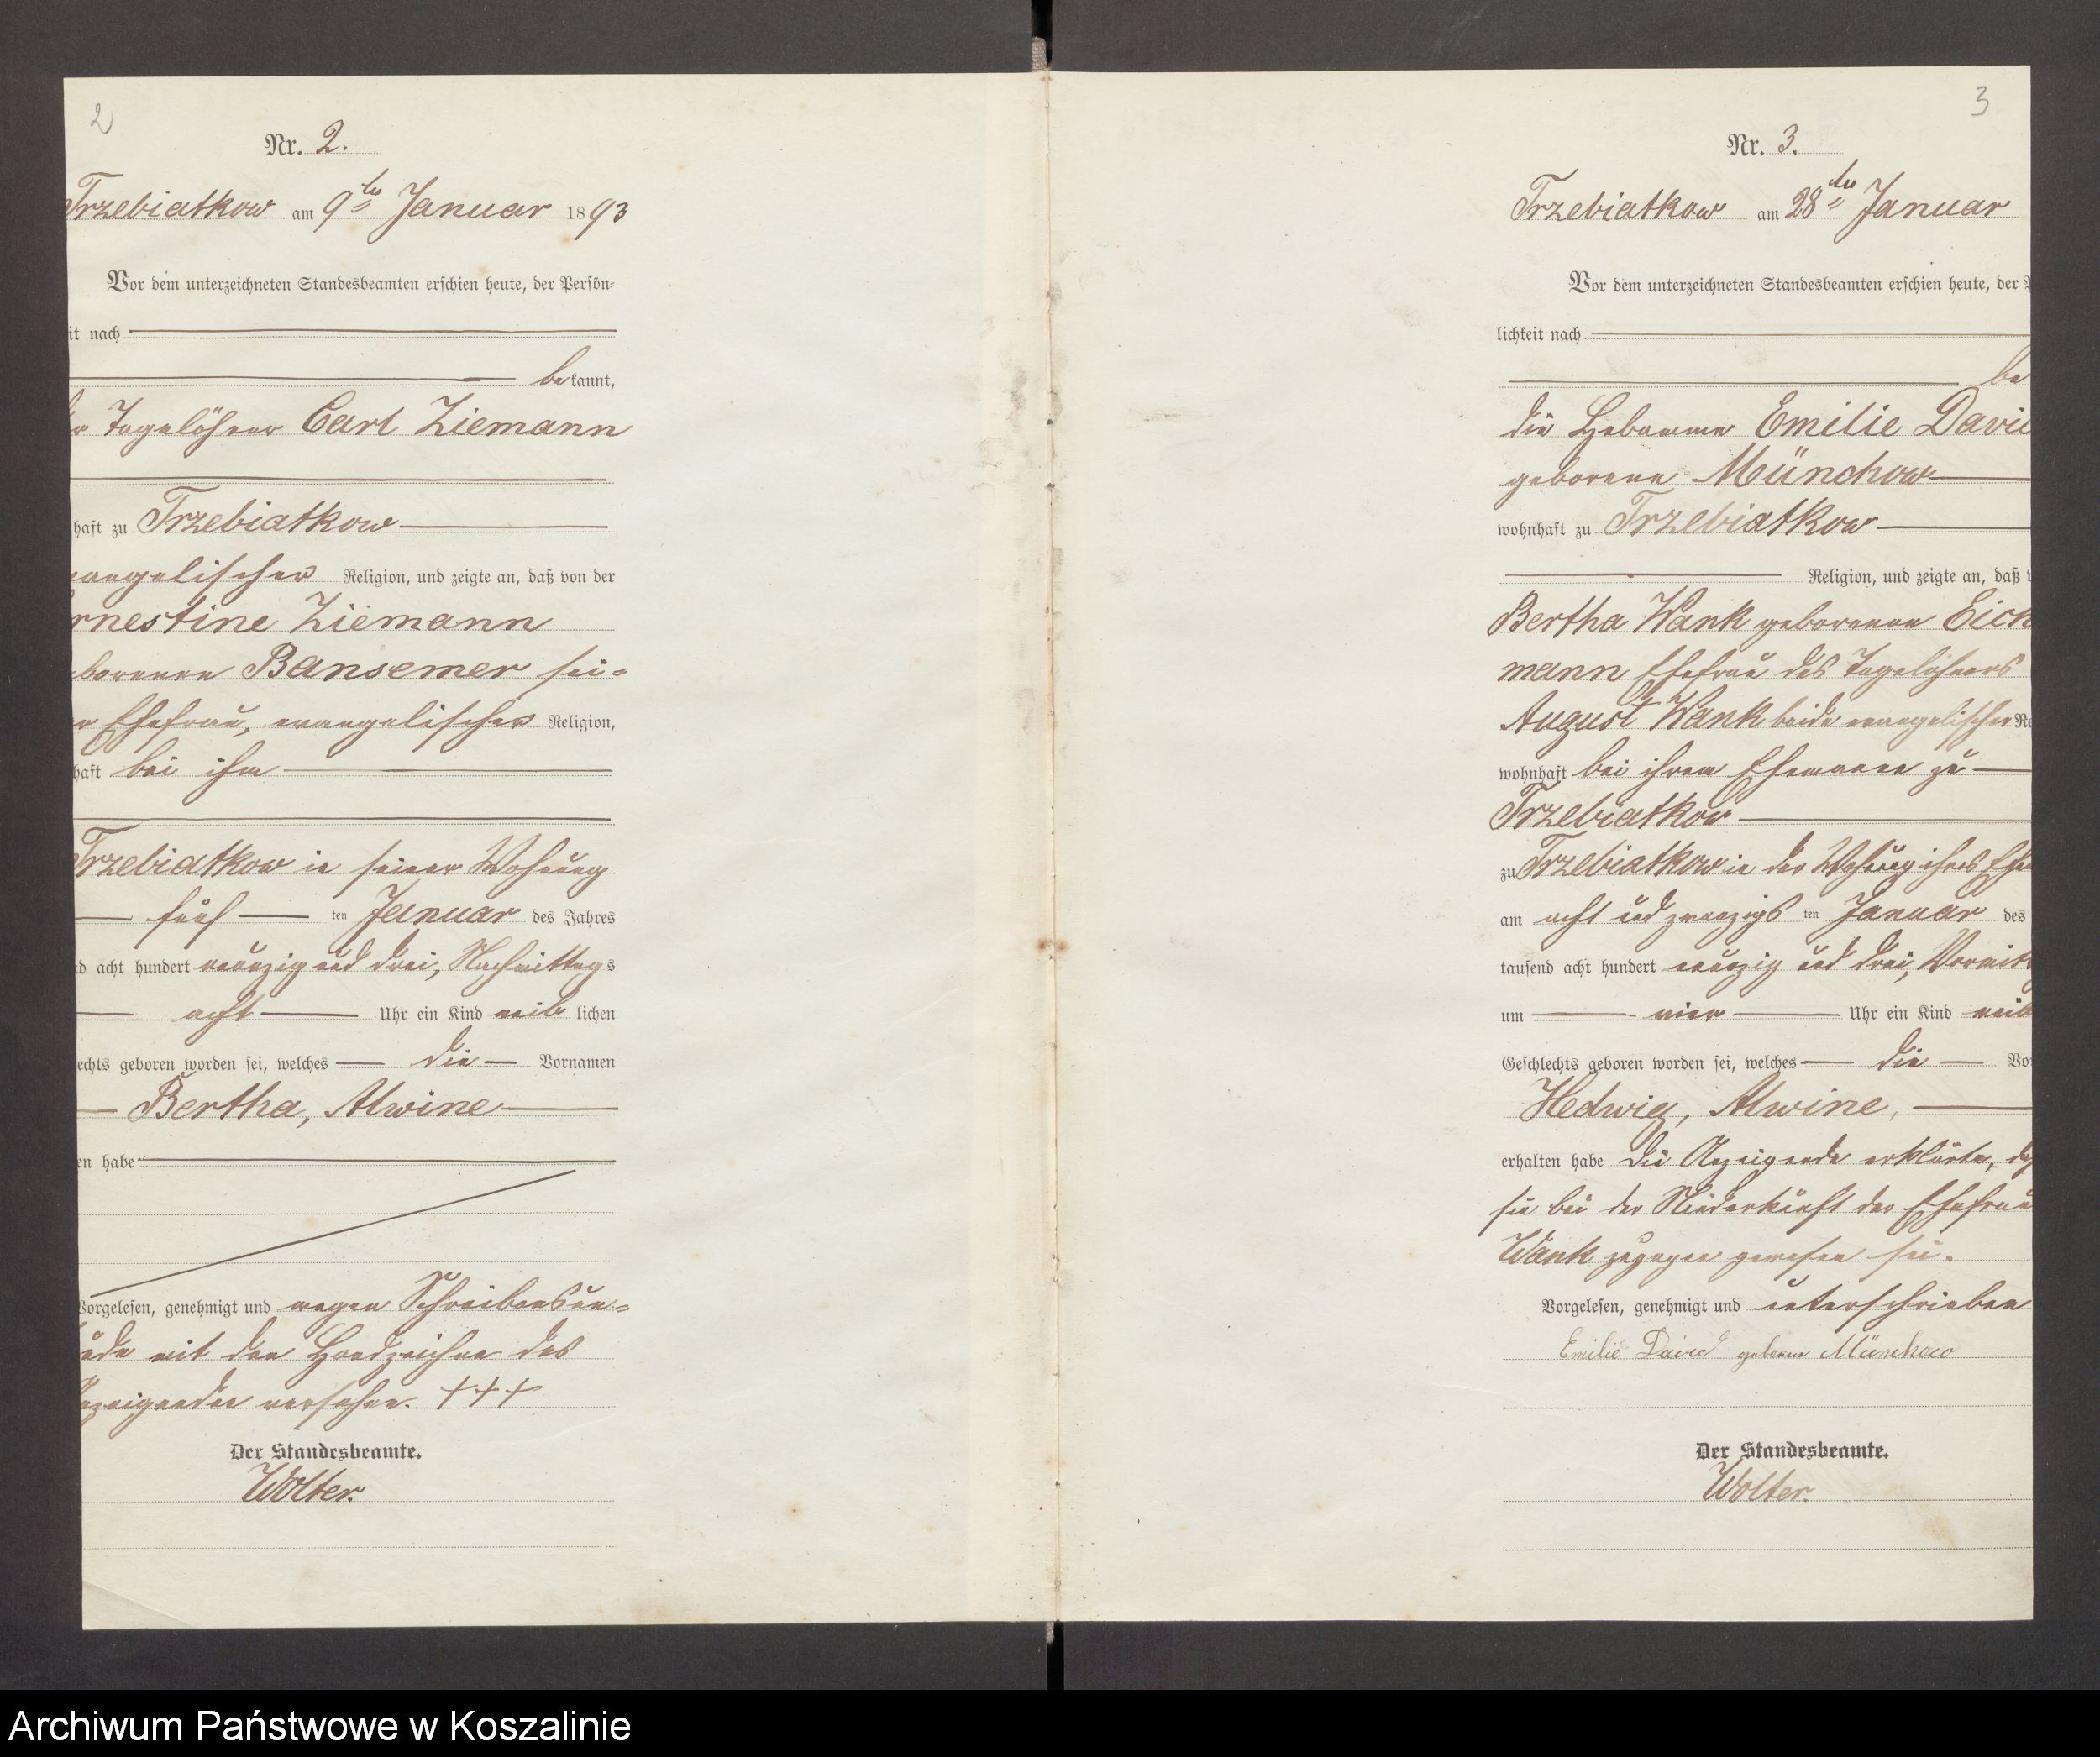 2
Nr. 2.
Trzebiatkow am 9ten Januar 1893
Vor dem unterzeichneten Standesbeamten erschien heute, der Persön-
it nach
bekannt,
Tagelöhner Carl Ziemann
haft zu Trzebiatkow
vangelischer Religion, und zeigte an, daß von der
rnestine Ziemann
borenen Bansemer sei-
r Ehefrau, evangelischer Religion,
haft bei ihm
Trzebiatkow in seiner Wohnung
fünf ten Januar des Jahres
d acht hundert neunzig und drei, Nachmittags
acht Uhr ein Kind weiblichen
echts geboren worden sei, welches die Vornamen
Bertha, Alwine
en habe
Vorgelesen, genehmigt und wegen Schreibensun-
unde mit den Handzeichen des
Anzeigenden versehen. +++
Der Standesbeamte.
Wolter.
3
Nr. 3.
Trzebiatkow am 28ten Januar
Vor dem unterzeichneten Standesbeamten erschien heute, der P
lichkeit nach
be
die Hebamme Emilie Davi
geborene Münchow
wohnhaft zu Trzebiatkow
Religion, und zeigte an, daß v
Bertha Wank geborenen Eich
mann Ehefrau des Tagelöhners
August Wank beide evangelischer Re
wohnhaft bei ihrem Ehemanne zu
Trzebiatkow
zu Trzebiatkow in der Wohnung ihres Ehe
am acht und zwanzigs ten Januar des
tausend acht hundert neunzig und drei, Vormitt
um vier Uhr ein Kind weib
Geschlechts geboren worden sei, welches die Vo
Hedwig, Alwine,
erhalten habe Die Anzeigende erklärte, daß
sie bei der Niederkunft der Ehefrau
Wank zugegen gewesen sei.
Vorgelesen, genehmigt und unterschrieben
Emilie David geborene Münchow
Der Standesbeamte.
Wolter.
Archiwum Państwowe w Koszalinie